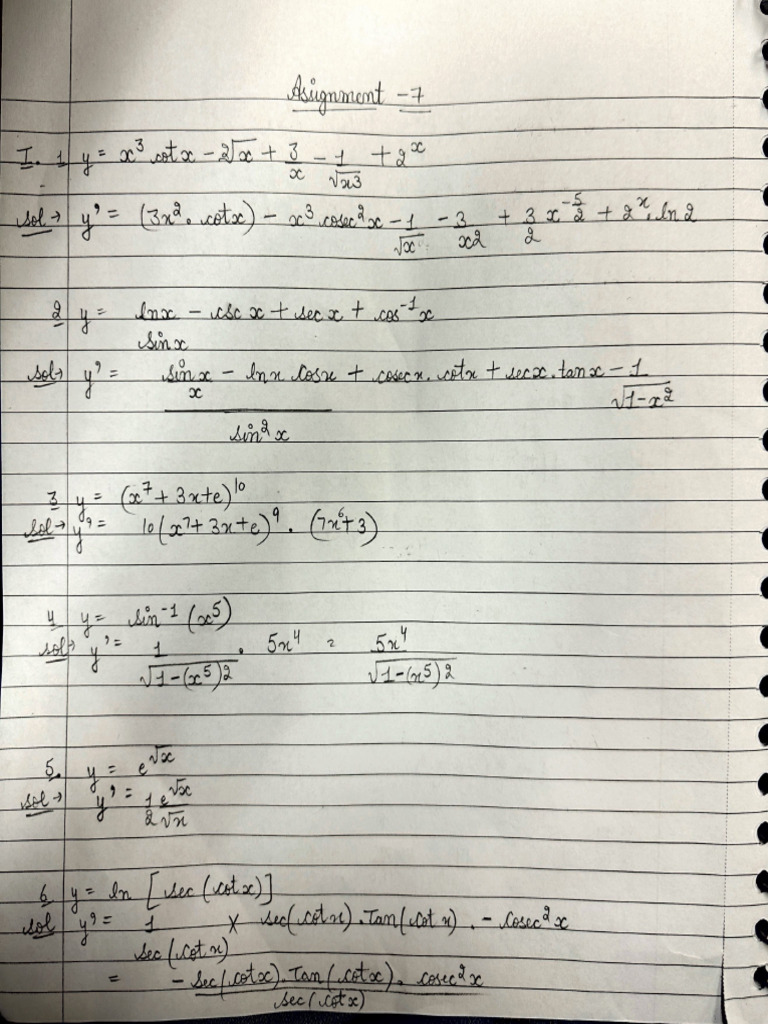 Asignment - 7
I. 1 y = x³ cotx - 2√x + 3/x - 1/√x3 + 2^x
sol→ y' = (3x². cotx) - x³ cosec²x - 1/√x - 3/x2 + 3/2 x^-5/2 + 2^x. ln2
2 y = lnx/sinx - csc x + sec x + cos⁻¹x
sol→ y' = sinx/x - lnx cosx + cosecx. cotx + secx. tanx - 1/√1-x²
sin²x
3 y = (x⁷ + 3x+e)¹⁰
sol→ y' = 10(x⁷+ 3x+e)⁹ . (7x⁶+3)
4 y = sin⁻¹ (x⁵)
sol→ y' = 1/√1-(x⁵)2 . 5x⁴ = 5x⁴/√1-(x⁵)2
5. y = e^√x
sol→ y' = 1/2 e^√x/√x
6 y = ln [sec (cotx)]
sol y' = 1/sec(cotx) × sec(cotx). Tan(cotx) . - Cosec²x
= - sec(cotx). Tan(cotx). cosec²x/sec(cotx)